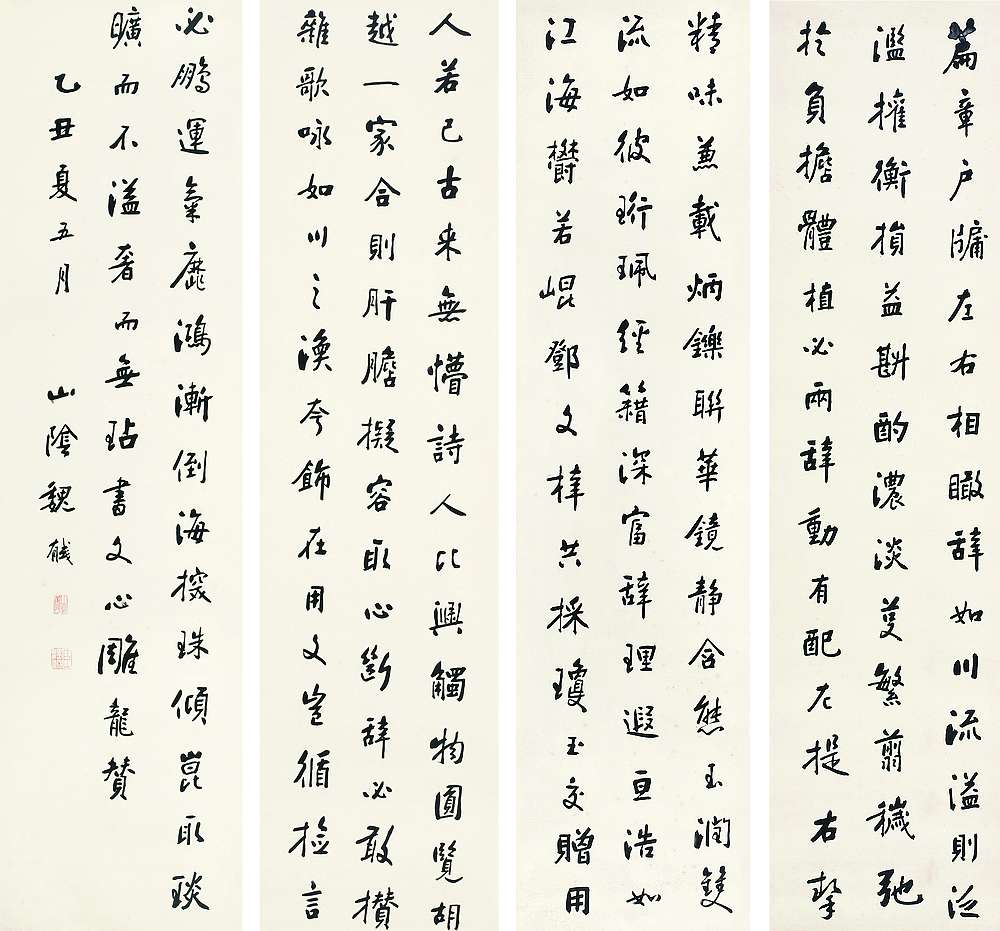 篇章戶牖左右相瞰辭如川流溢則泛
濫權衡損益斟酌濃淡芟繁翦穢弛
於負擔體植必兩辭動有配左提右挈
精味兼載炳鑠聯華鏡靜含態玉潤雙
流如彼珩珮經籍深富辭理遐亘浩如
江海鬱若崐鄧文梓共採瓊玉交贈用
人若己古来無懵詩人比興觸物圓覽胡
越一家合則肝膽擬容取心斷辭必敢攢
雜歌咏如川之渙夸飾在用文豈循檢言
必鵬運氣靡鴻漸倒海探珠傾崑取琰
曠而不溢奢而無玷書文心雕龍贊
乙丑夏五月 山陰魏戫